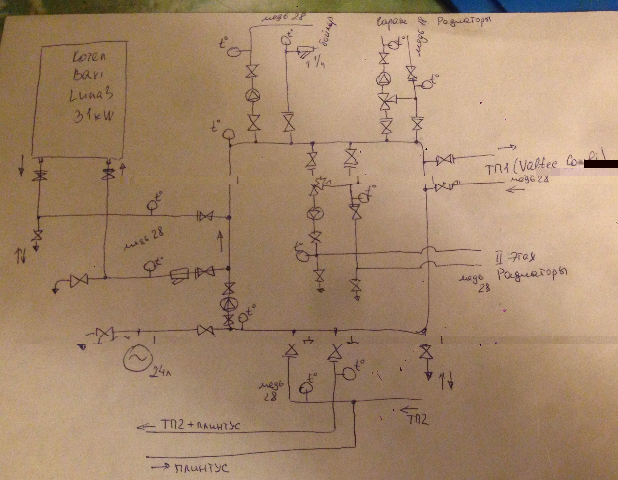 медь 28
бойлер
1 1/4
гараж
Радиаторы
медь 28
t°
t°
t°
t°
t°
Котел
Baxi
Luna3
31 kW
ТП1 (Valtec Combi)
медь 28
t°
t°
медь 28
t°
t°
II Этаж
Радиаторы
медь 28
t°
24л
медь 28
t°
t°
ТП2 + ПЛИНТУС
ТП2
ПЛИНТУС